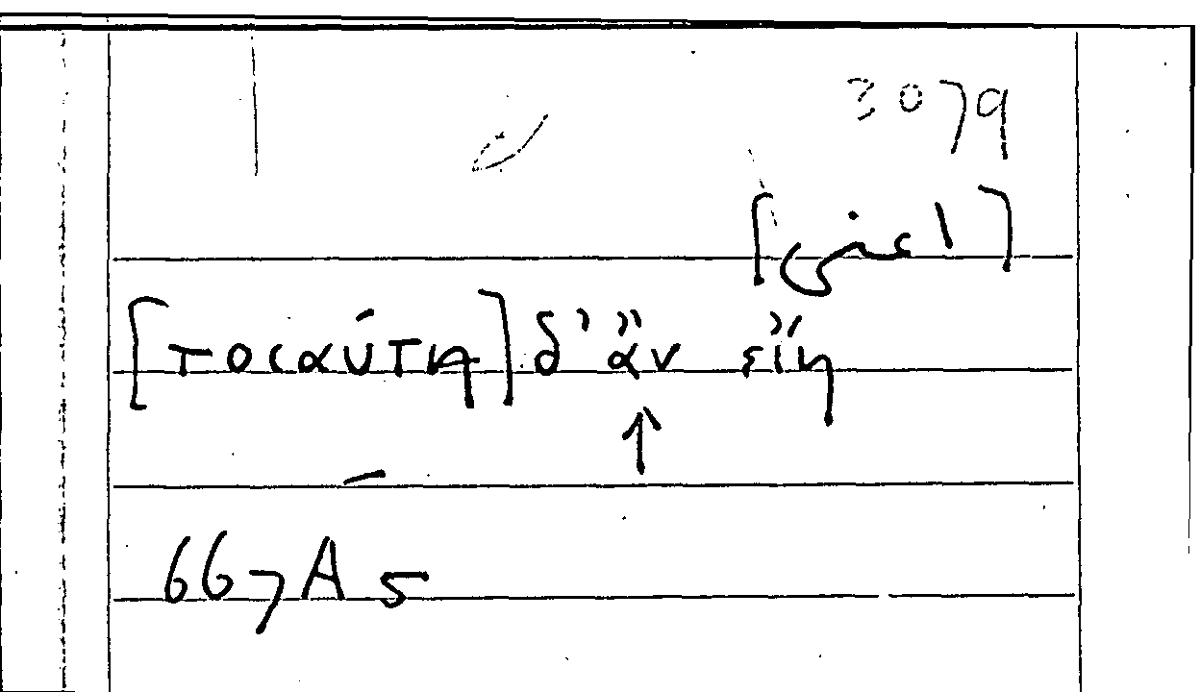 3079
[τοσαύτη] δ' ἂν εἴη
↑
667A5